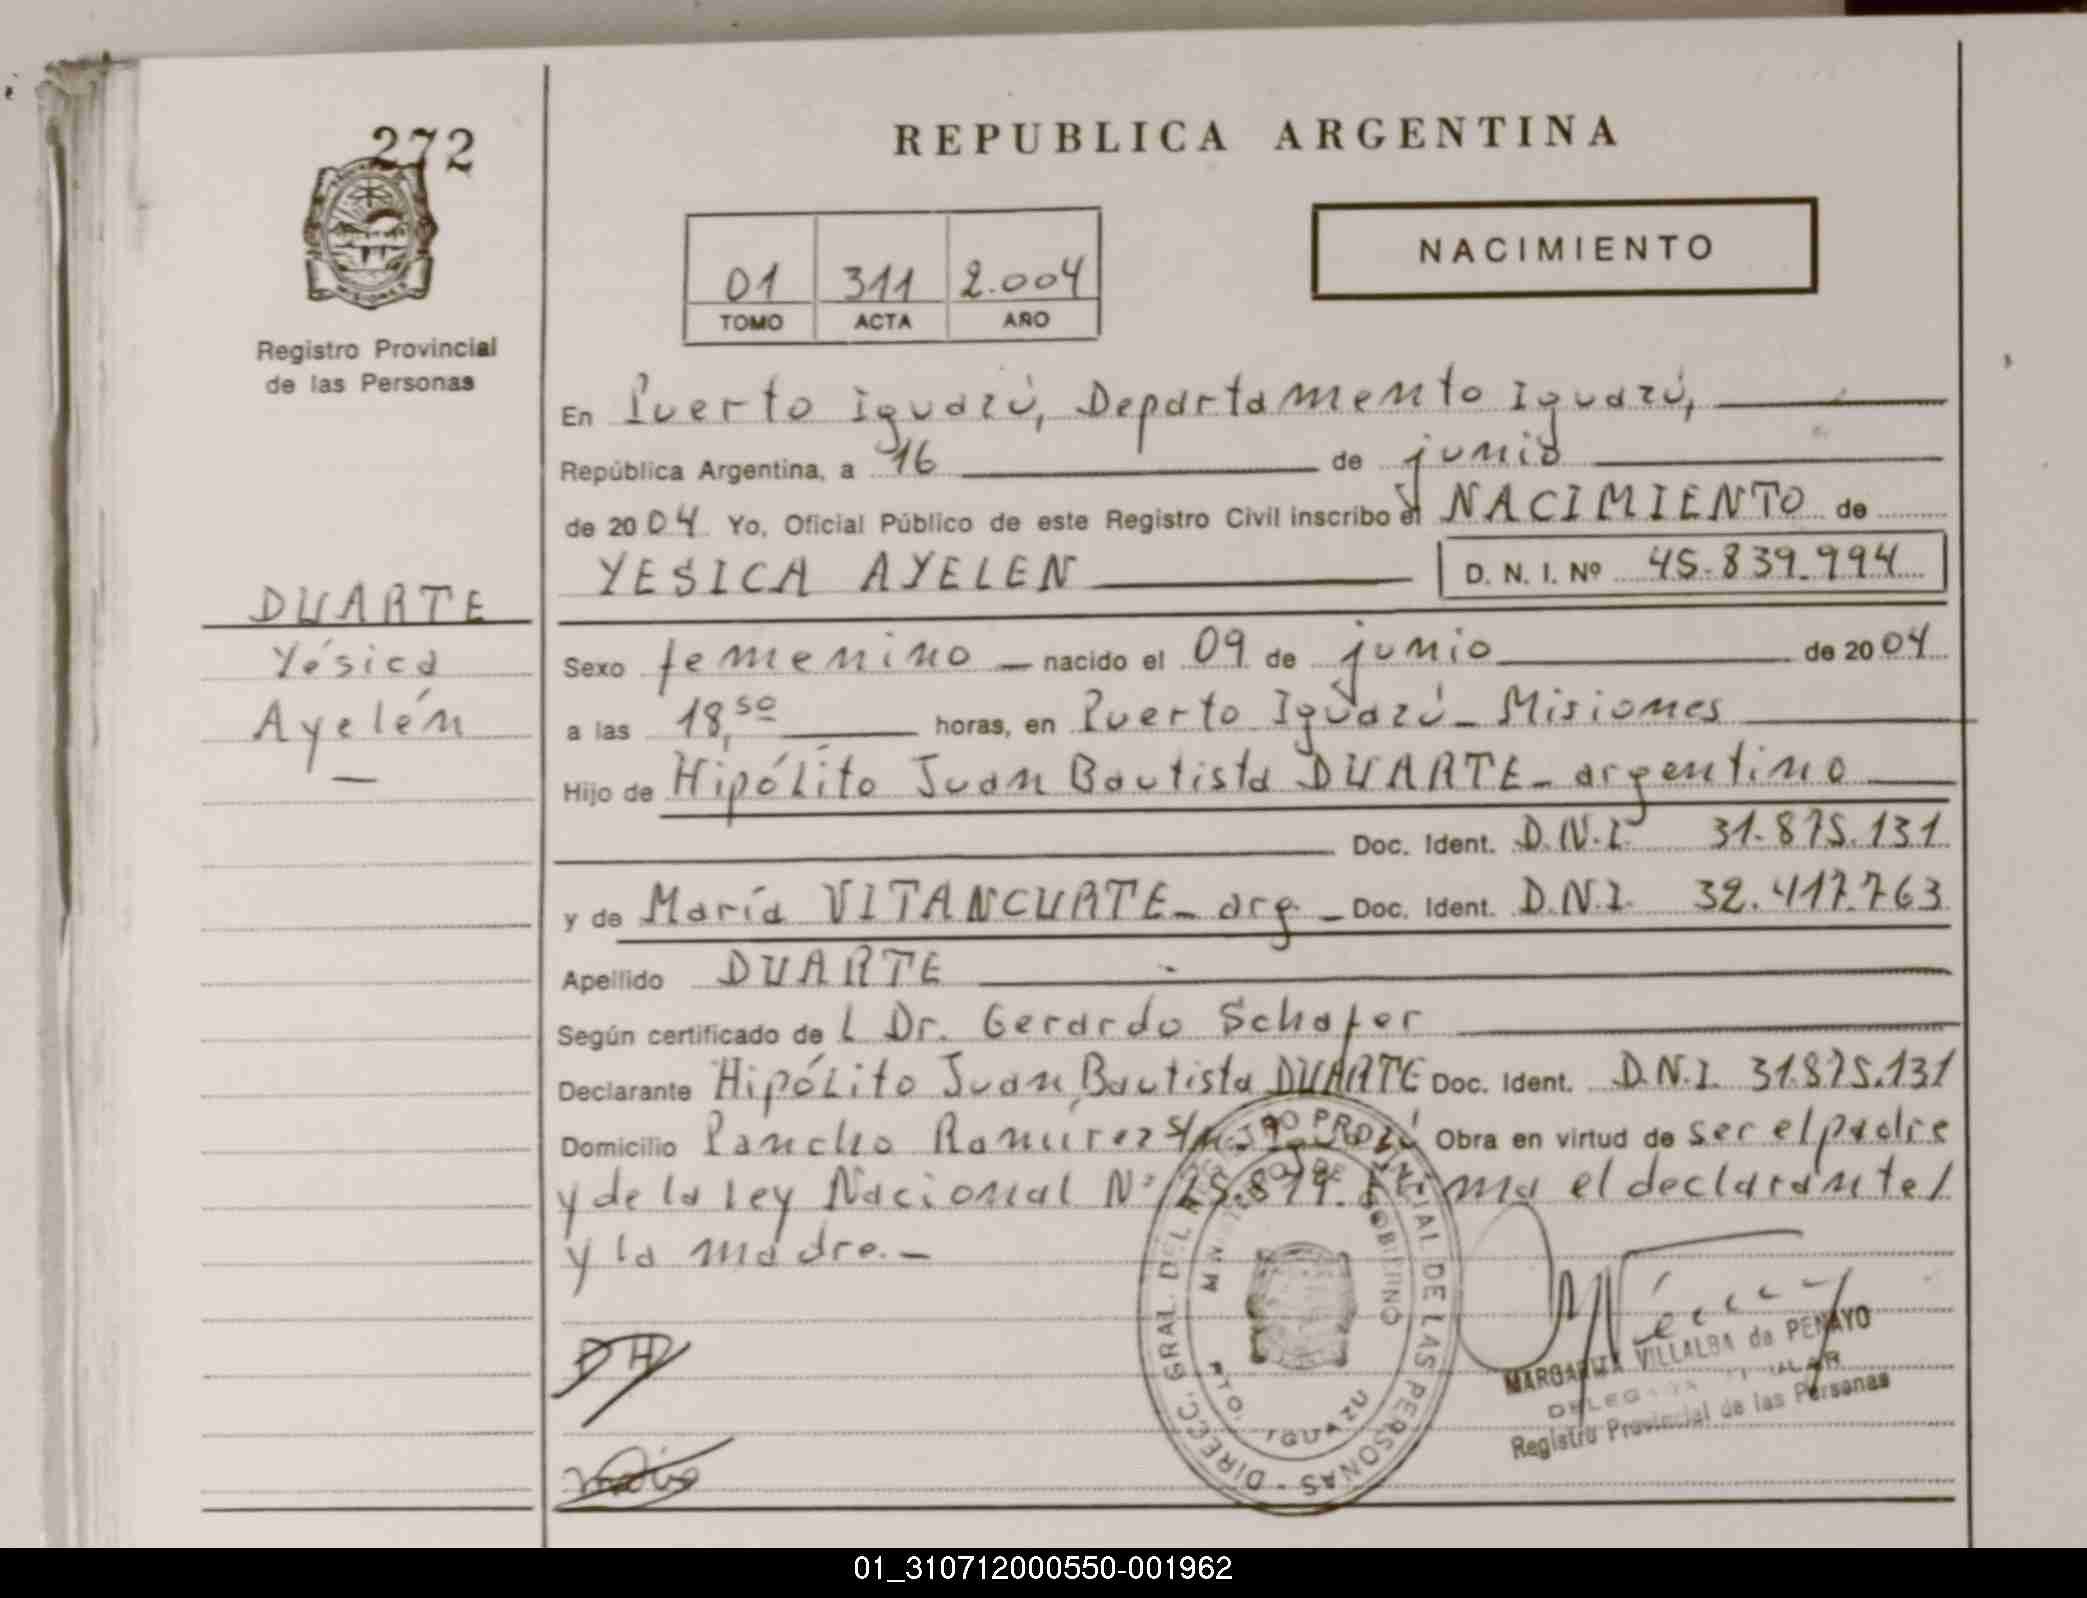 272
Registro Provincial
de las Personas
DUARTE
Yésica
Ayelén
REPUBLICA ARGENTINA
NACIMIENTO
01 311 2.004
TOMO ACTA AÑO
En Puerto Iguazú, Departamento Iguazú,
República Argentina, a 16 de junio
de 2004 Yo, Oficial Público de este Registro Civil inscribo el NACIMIENTO de
YESICA AYELEN D. N. I. Nº 45.839.994
Sexo femenino nacido el 09 de junio de 2004
a las 18,50 horas, en Puerto Iguazú - Misiones
Hijo de Hipólito Juan Bautista DUARTE - argentino
Doc. Ident. D.N.I. 31.875.131
y de María VITANCURTE - arg - Doc. Ident. D.N.I. 32.417.763
Apellido DUARTE
Según certificado de l Dr. Gerardo Schafer
Declarante Hipólito Juan Bautista DUARTE Doc. Ident. D.N.I. 31.875.131
Domicilio Pancho Ramírez s/n. Obra en virtud de ser el padre
y de la ley Nacional Nº Firma el declarante/
y la madre.-
DIRECC. GRAL. DEL REGISTRO PROVINCIAL DE LAS PERSONAS
MINISTERIO DE GOBIERNO
DTO. IGUAZU
DH
MARGARITA VILLALBA de PENAYO
DELEGADA TITULAR
Registro Provincial de las Personas
01_310712000550-001962